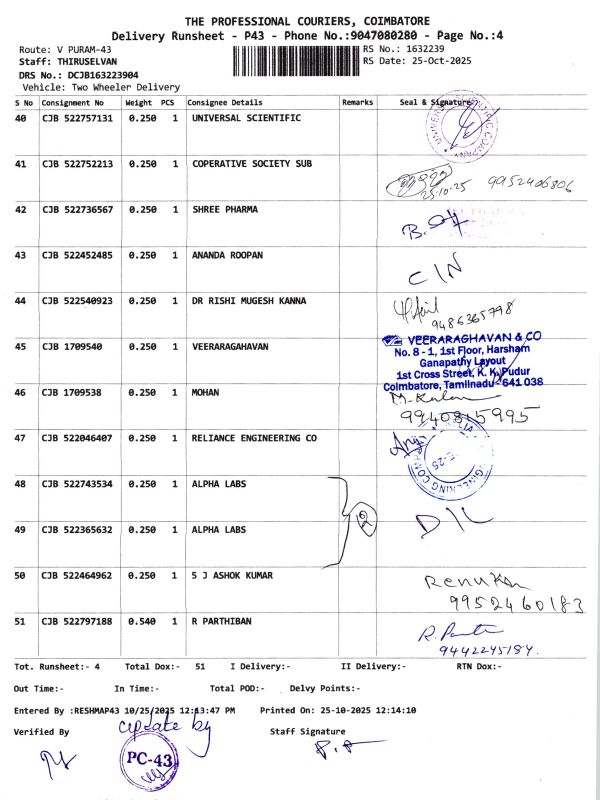 THE PROFESSIONAL COURIERS, COIMBATORE
Delivery Runsheet - P43 - Phone No.:9047080280 - Page No.:4
Route: V PURAM-43
RS No.: 1632239
Staff: THIRUSELVAN
RS Date: 25-Oct-2025
DRS No.: DCJB163223904
Vehicle: Two Wheeler Delivery
S No Consignment No Weight PCS Consignee Details Remarks Seal & Signature
40 CJB 522757131 0.250 1 UNIVERSAL SCIENTIFIC
41 CJB 522752213 0.250 1 COPERATIVE SOCIETY SUB
25.10.25 9952406806
42 CJB 522736567 0.250 1 SHREE PHARMA
43 CJB 522452485 0.250 1 ANANDA ROOPAN
C/N
44 CJB 522540923 0.250 1 DR RISHI MUGESH KANNA
9486365798
45 CJB 1709540 0.250 1 VEERARAGAHAVAN
VEERARAGHAVAN & CO
No. 8 - 1, 1st Floor, Harsham
Ganapathy Layout
1st Cross Street, K. K. Pudur
Coimbatore, Tamilnadu - 641 038
46 CJB 1709538 0.250 1 MOHAN
9940815995
47 CJB 522046407 0.250 1 RELIANCE ENGINEERING CO
48 CJB 522743534 0.250 1 ALPHA LABS
2
D/L
49 CJB 522365632 0.250 1 ALPHA LABS
50 CJB 522464962 0.250 1 S J ASHOK KUMAR
9952460183
51 CJB 522797188 0.540 1 R PARTHIBAN
9442245187.
Tot. Runsheet:- 4 Total Dox:- 51 I Delivery:- II Delivery:- RTN Dox:-
Out Time:- In Time:- Total POD:- Delvy Points:-
Entered By :RESHMAP43 10/25/2025 12:13:47 PM Printed On: 25-10-2025 12:14:10
Verified By update by Staff Signature
PC-43